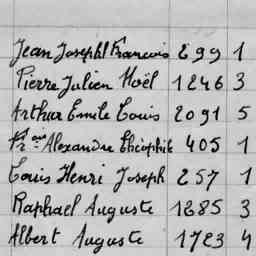 Jean Joseph Francois 299 1
Pierre Julien Noël 1246 3
Arthur Emile Louis 2091 5
Fr ois Alexandre Théophile 405 1
Louis Henri Joseph 257 1
Raphael Auguste 1285 3
Albert Auguste 1723 4